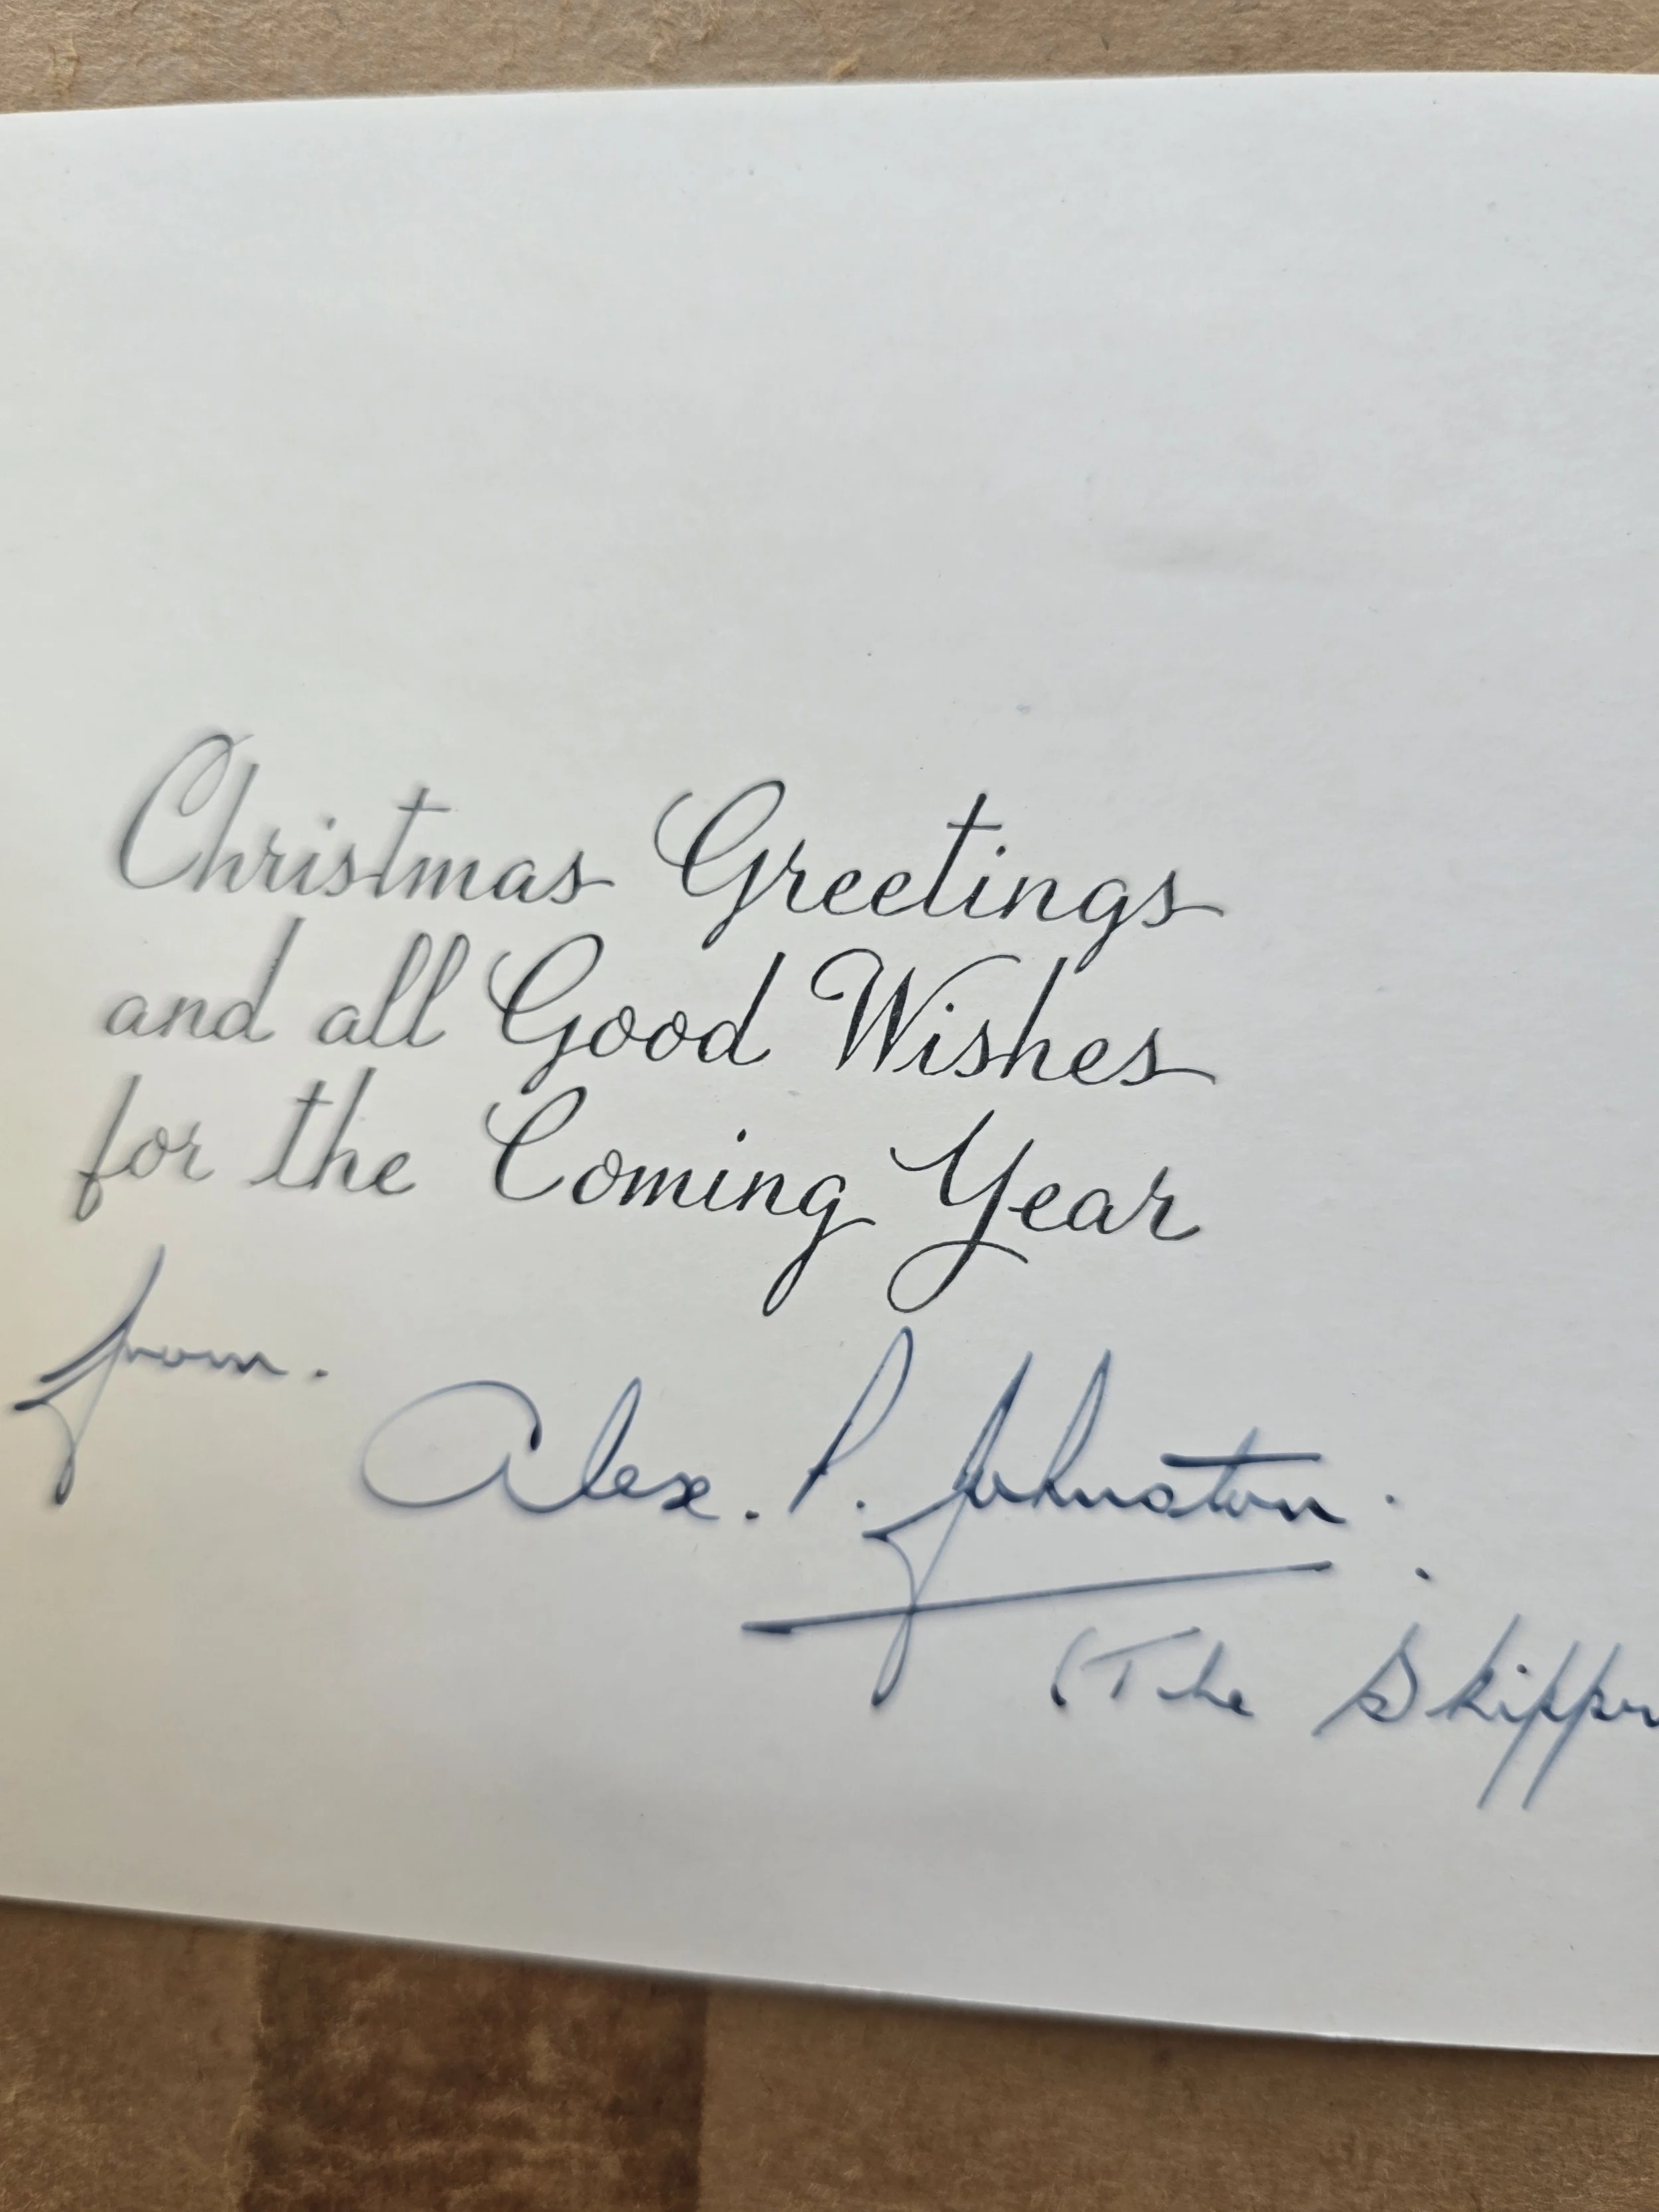 Christmas Greetings
and all Good Wishes
for the Coming Year
from.
Alex. P. Johnston.
(The Skipper